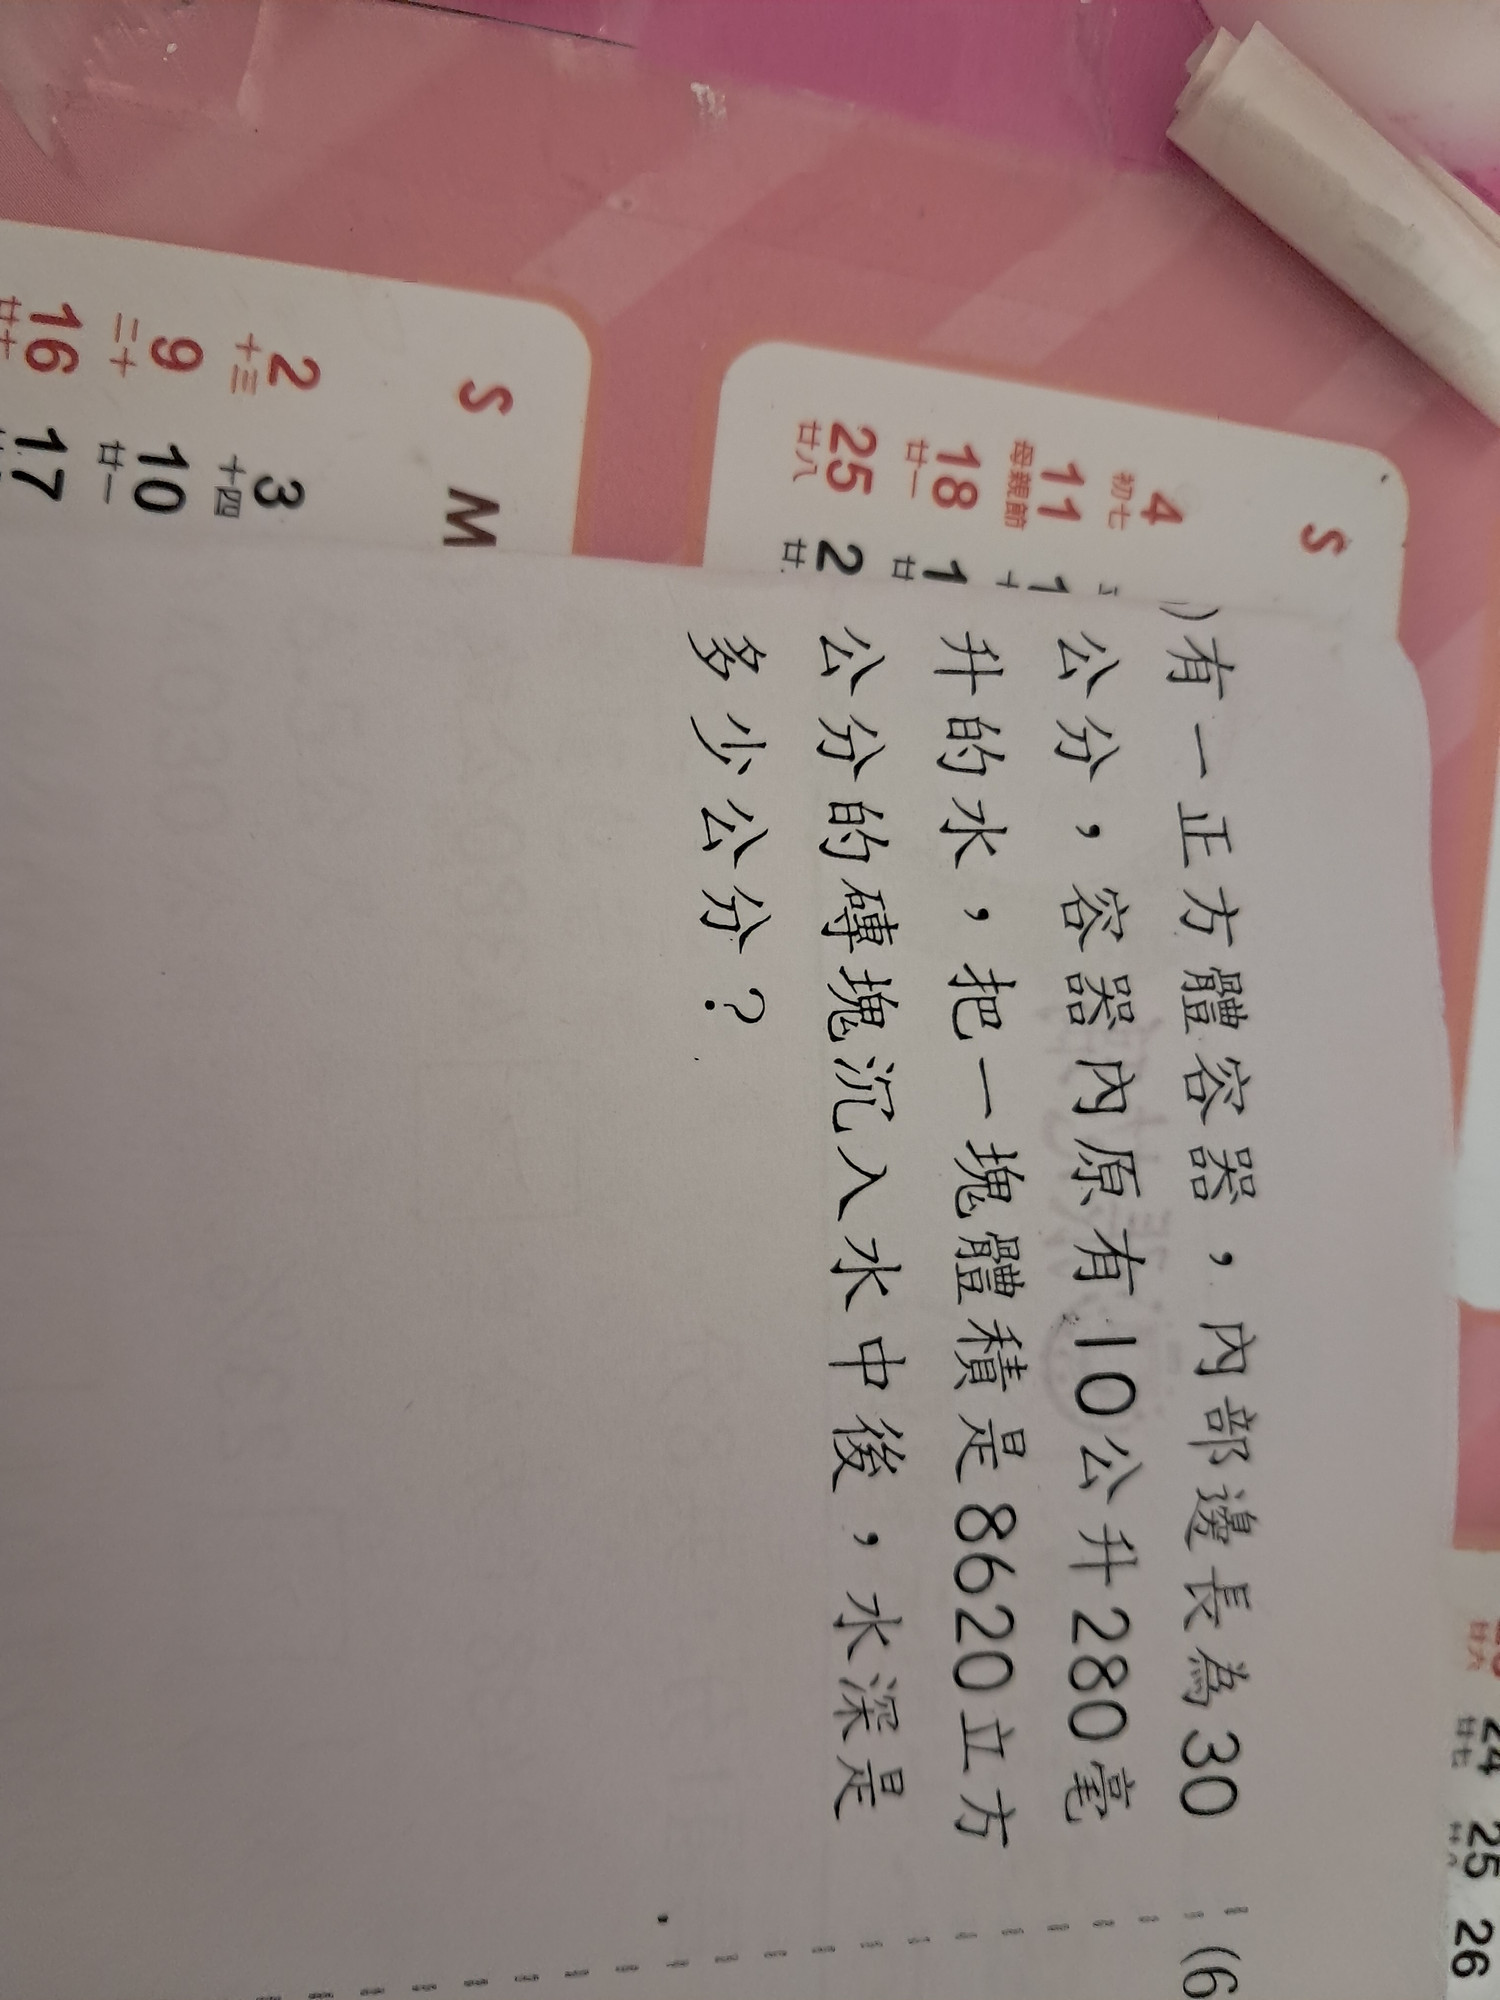 )有一正方體容器，內部邊長為30
公分，容器內原有10公升280毫
升的水，把一塊體積是8620立方
公分的磚塊沉入水中後，水深是
多少公分？
(6
S
4
初七
11
母親節
18 1
廿一 廿
25 2
廿八 廿
S M
2 3
十三 十四
9 10
二十 廿一
16 17
廿六 24 25 26
廿七